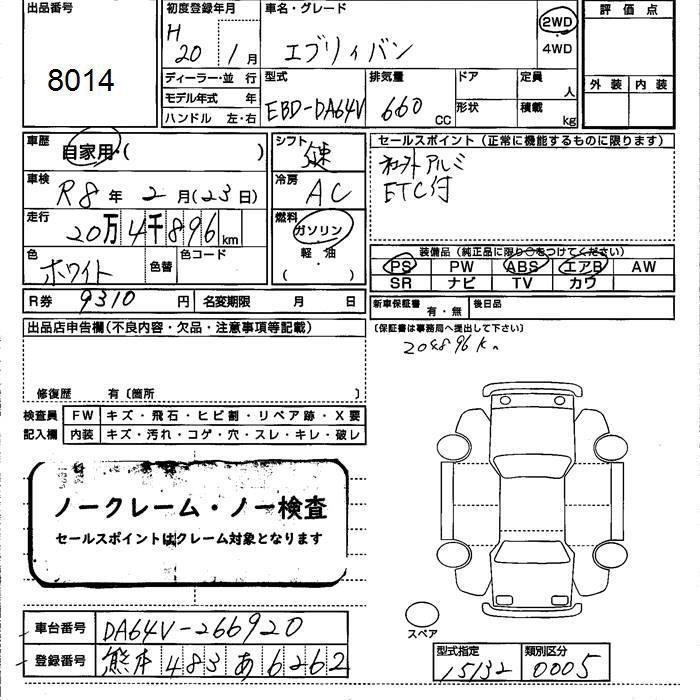 出品番号
8014
初度登録年月
H 20年 1月
車名・グレード
エブリィバン
2WD
4WD
評価点
外装 内装
ディーラー・並行
モデル年式 年
ハンドル 左・右
型式
EBD-DA64V
排気量
660 CC
ドア
形状
定員 人
積載 kg
車歴
自家用・( )
シフト
冷房
AC
車検
R8年 2月(23日)
走行
20万4千896km
燃料
ガソリン
(軽・油)
色
ホワイト
色替
色コード
R券 9310円
名変期限 月 日
セールスポイント(正常に機能するものに限ります)
アルミ
ETC付
装備品(純正品に限り○をつけてください)
PS PW ABS エアB AW
SR ナビ TV カワ
新車保証書 有・無
後日品
(保証書は事務局へ提出して下さい)
204896K
出品店申告欄(不良内容・欠品・注意事項等記載)
修復歴 有〔箇所 〕
検査員記入欄
FW キズ・飛石・ヒビ割・リペア跡・X要
内装 キズ・汚れ・コゲ・穴・スレ・キレ・破レ
ノークレーム・ノー検査
セールスポイントはクレーム対象となります
車台番号 DA64V-266920
登録番号 熊本 483 あ 6262
スペア
型式指定
15132
類別区分
0005